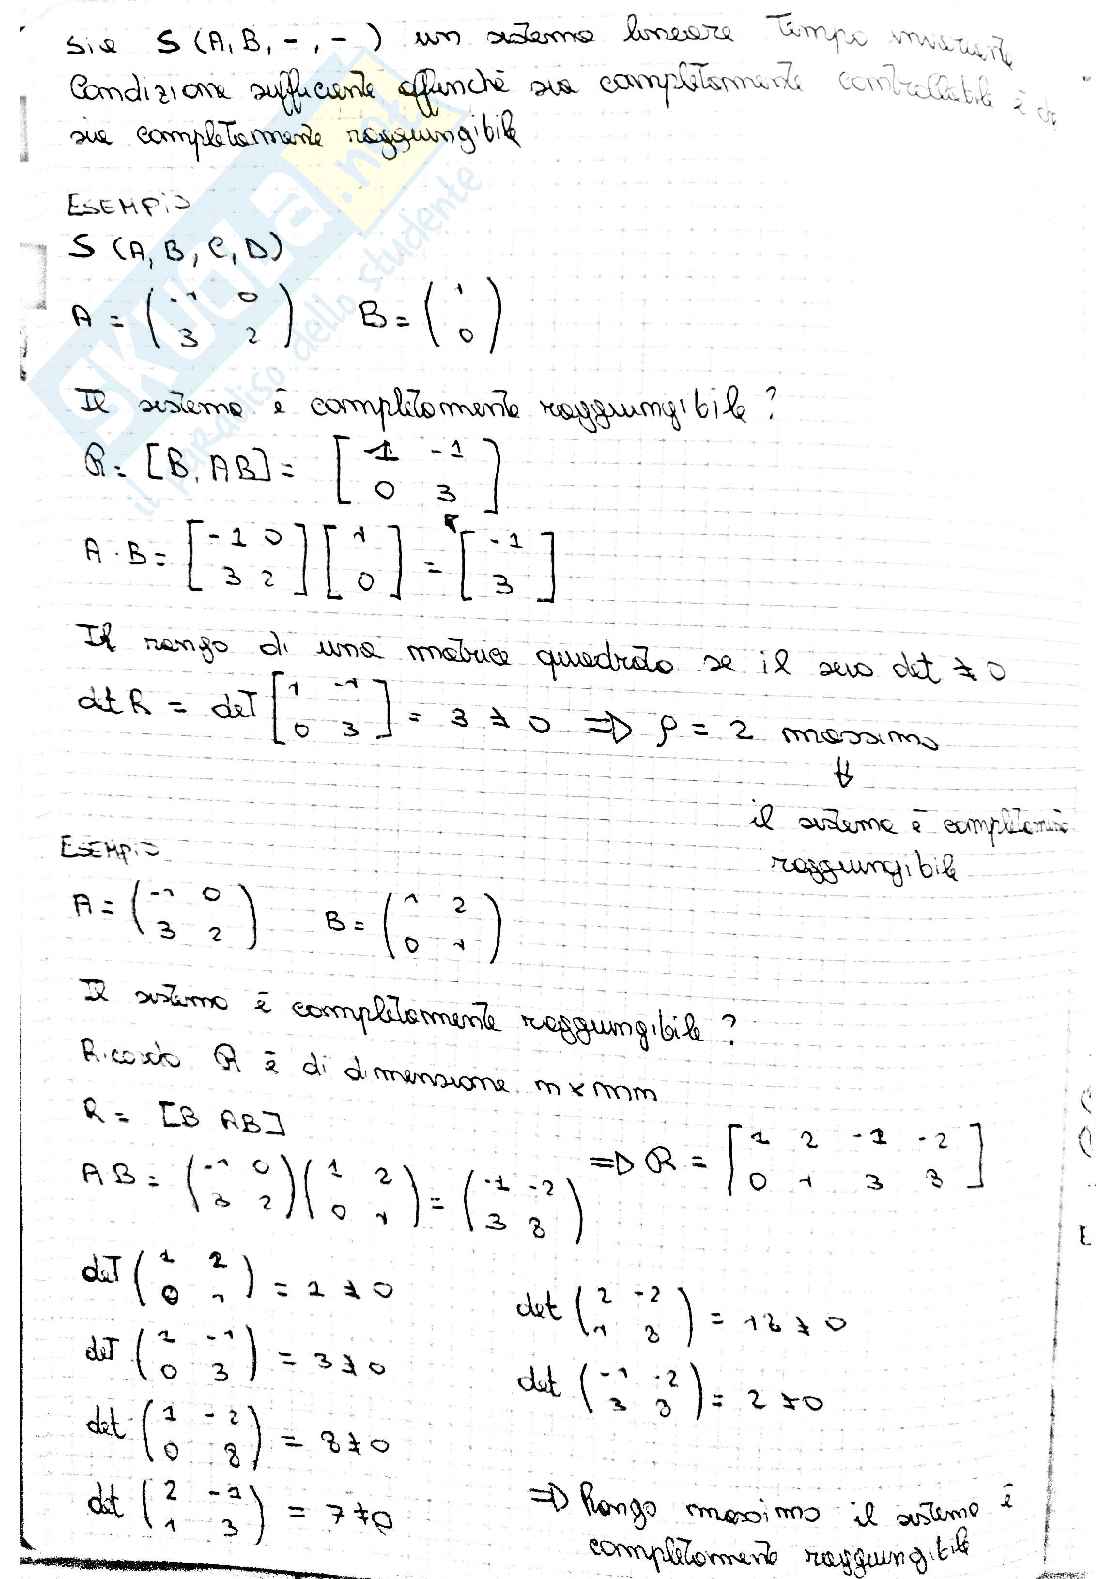 Sia S (A, B, -, -) un sistema lineare tempo invariante
Condizione sufficiente affinché sia completamente controllabile è che
sia completamente raggiungibile
ESEMPIO
S (A, B, C, D)
A = ( -1 0 ; 3 2 ) B = ( 1 ; 0 )
Il sistema è completamente raggiungibile ?
R = [B, AB] = [ 1 -1 ; 0 3 ]
A · B = [ -1 0 ; 3 2 ] [ 1 ; 0 ] = [ -1 ; 3 ]
Il rango di una matrice quadrata se il suo det ≠ 0
det R = det [ 1 -1 ; 0 3 ] = 3 ≠ 0 => ρ = 2 massimo
⇓
il sistema è completamente
raggiungibile
ESEMPIO
A = ( -1 0 ; 3 2 ) B = ( 1 2 ; 0 1 )
Il sistema è completamente raggiungibile ?
Ricordo R è di dimensione n x nm
R = [B AB]
AB = ( -1 0 ; 3 2 ) ( 1 2 ; 0 1 ) = ( -1 -2 ; 3 8 ) => R = [ 1 2 -1 -2 ; 0 1 3 8 ]
det ( 1 2 ; 0 1 ) = 1 ≠ 0
det ( 1 -1 ; 0 3 ) = 3 ≠ 0
det ( 1 -2 ; 0 8 ) = 8 ≠ 0
det ( 2 -1 ; 1 3 ) = 7 ≠ 0
det ( 2 -2 ; 1 8 ) = 18 ≠ 0
det ( -1 -2 ; 3 8 ) = 2 ≠ 0
=> Rango massimo il sistema è
completamente raggiungibile
SKUOLA.net
il paradiso dello studente